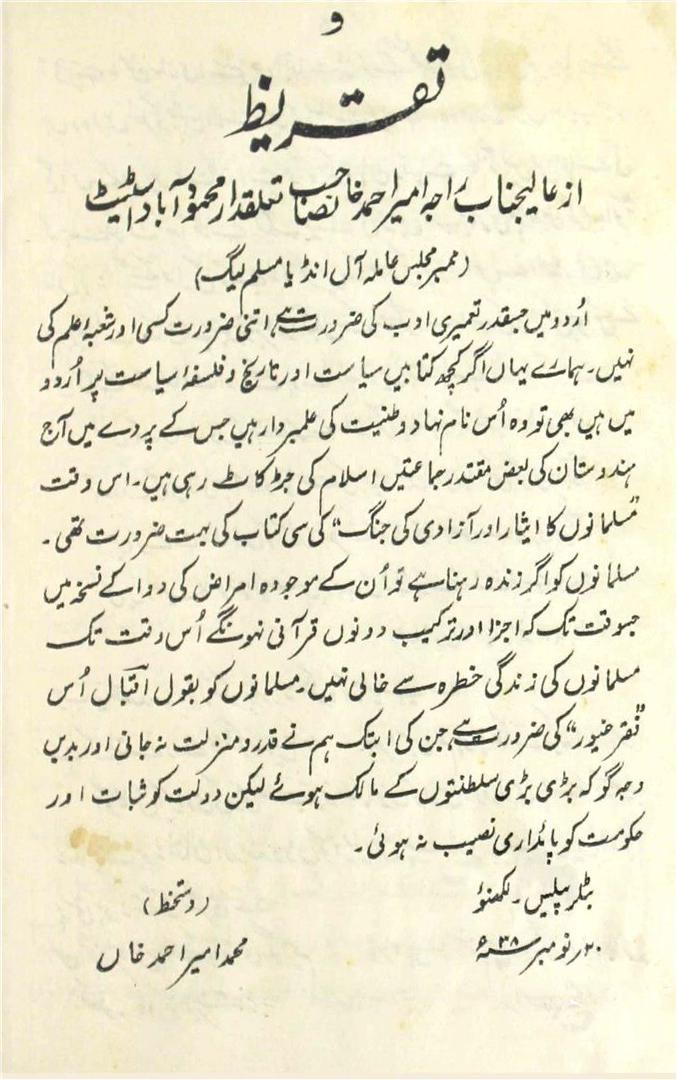 و
تقریظ
از عالیجناب راجہ امیر احمد خانصاحب تعلقدار محمود آباد اسٹیٹ
(ممبر مجلس عاملہ آل انڈیا مسلم لیگ)
اُردو میں جسقدر تعمیری ادب کی ضرورت ہے، اتنی ضرورت کسی اور شعبۂ علم کی
نہیں۔ ہمارے یہاں اگر کچھ کتابیں سیاست اور تاریخ و فلسفۂ سیاست پر اُردو
میں ہیں بھی تو وہ اُس نام نہاد وطنیت کی علمبردار ہیں جس کے پردے میں آج
ہندوستان کی بعض مقتدر جماعتیں اسلام کی جڑ کاٹ رہی ہیں۔ اس وقت
"مسلمانوں کا ایثار اور آزادی کی جنگ" کی سی کتاب کی بہت ضرورت تھی۔
مسلمانوں کو اگر زندہ رہنا ہے تو اُن کے موجودہ امراض کی دوا کے نسخہ میں
جبوقت تک کہ اجزا اور ترکیب دونوں قرآنی نہونگے اُس وقت تک
مسلمانوں کی زندگی خطرہ سے خالی نہیں۔ مسلمانوں کو بقول اقبال اُس
"فقر غیور" کی ضرورت ہے، جن کی ابتک ہم نے قدر و منزلت نہ جانی اور بدیں
وجہ گو کہ بڑی بڑی سلطنتوں کے مالک ہوئے لیکن دولت کو ثبات اور
حکومت کو پائداری نصیب نہ ہوئی۔
بٹلر پیلیس۔ لکھنؤ
(دستخط)
۲۰ر نومبر ۳۸ سنہ ء
محمد امیر احمد خاں